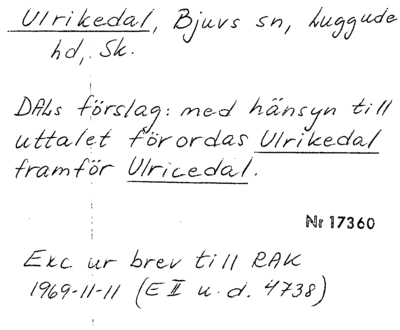 Ulrikedal, Bjuvs sn, Luggude
hd, Sk.
DALs förslag: med hänsyn till
uttalet förordas Ulrikedal
framför Ulricedal.
Nr 17360
Exc ur brev till RAK
1969-11-11 (E II u. d. 4738)